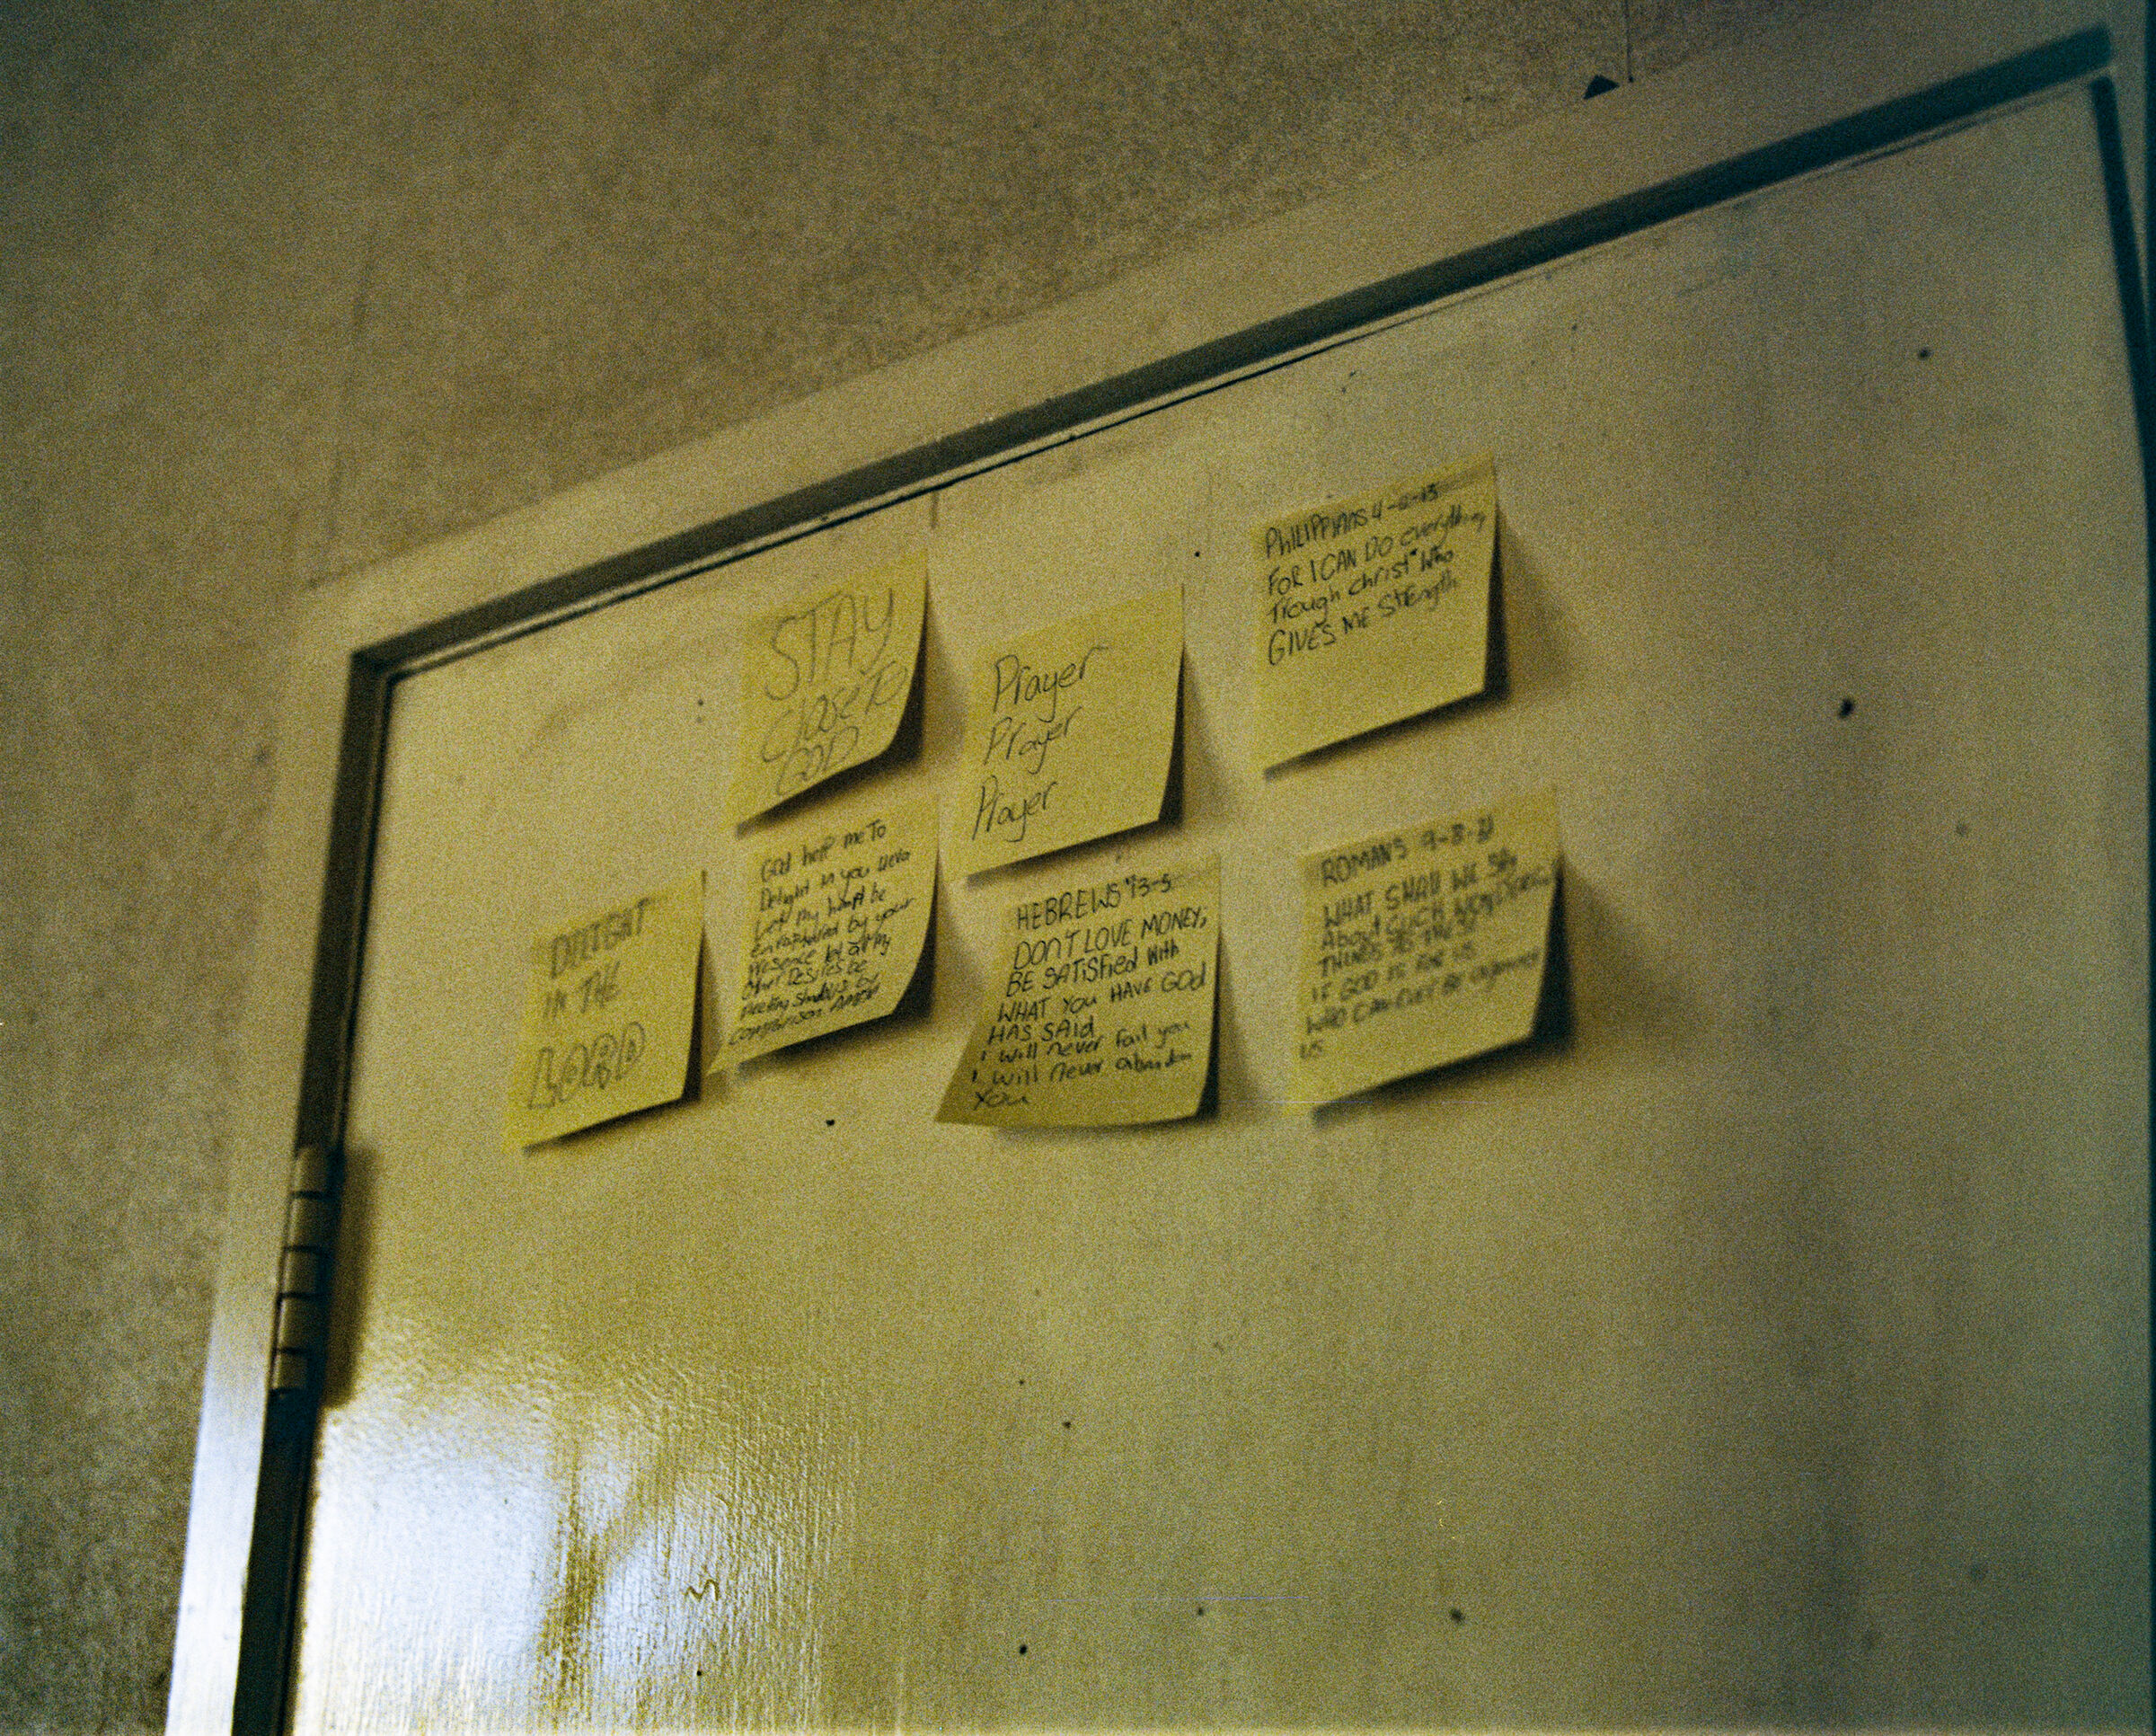 STAY
CLOSE TO
GOD
Prayer
Prayer
Prayer
PHILIPPIANS 4-6-13
FOR I CAN DO everything
Trough Christ Who
GIVES ME STRENGTH
DELIGHT
IN THE
LORD
God help me To
Delight in you
Let my heart be
enraptured by your
presence let all my
other Desires be
fleeting shadows by
comparison AMEN
HEBREWS 13-5
DON'T LOVE MONEY;
BE SATISFIED With
WHAT YOU HAVE GOD
HAS SAID
I will never fail you
I will never abandon
You
ROMANS
WHAT SHALL WE SAY
About SUCH WONDERFUL
THINGS AS THESE
IF GOD IS FOR US
WHO CAN EVER BE against
us